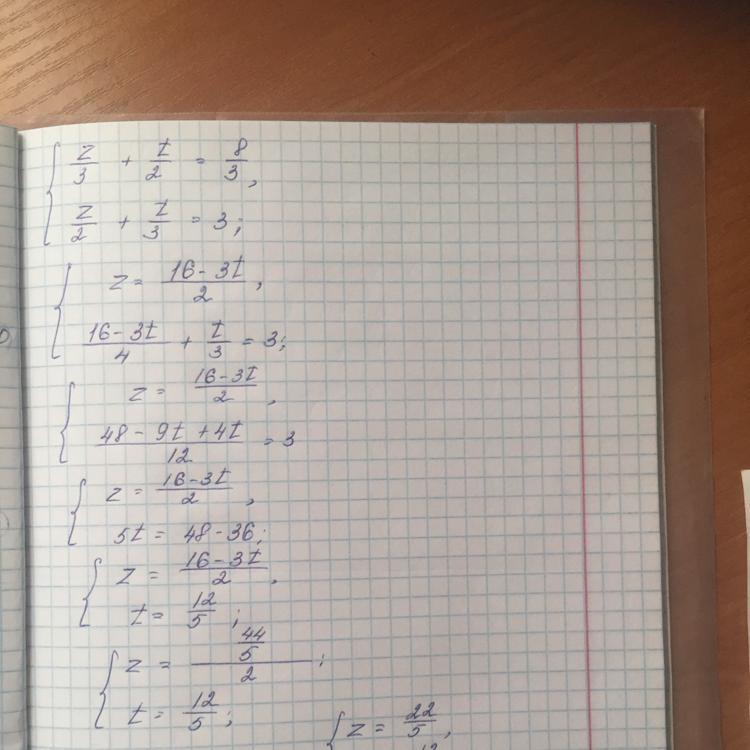 z/3 + t/2 = 8/3,
z/2 + t/3 = 3;
z = (16-3t)/2,
(16-3t)/4 + t/3 = 3;
z = (16-3t)/2,
(48-9t+4t)/12 = 3
z = (16-3t)/2,
5t = 48-36;
z = (16-3t)/2,
t = 12/5;
z = (44/5)/2;
t = 12/5;
z = 22/5,